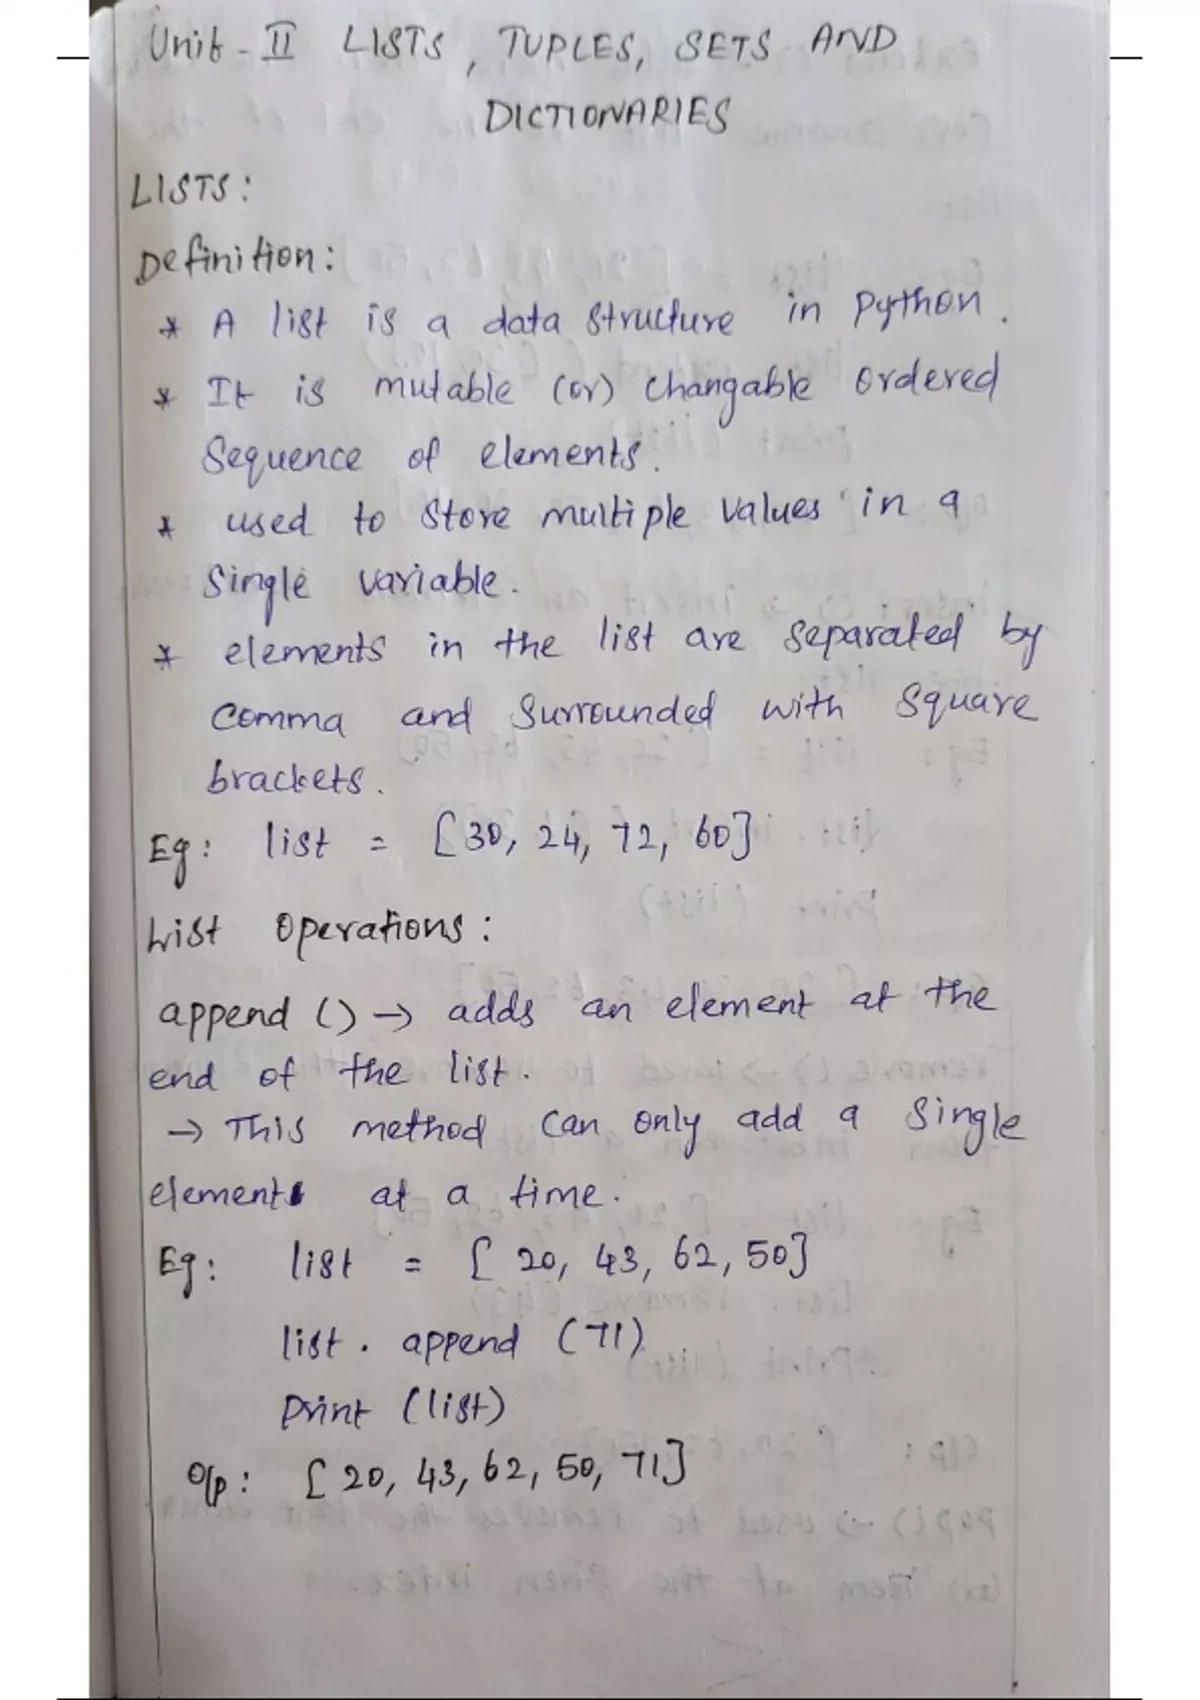 Unit - II LISTS, TUPLES, SETS AND
DICTIONARIES
LISTS:
Definition:
* A list is a data structure in python.
* It is mutable (or) changable ordered
sequence of elements.
* used to store multiple values in a
single variable.
* elements in the list are separated by
comma and surrounded with square
brackets.
Eg: list = [30, 24, 72, 60]
List operations:
append () → adds an element at the
end of the list.
→ This method can only add a single
element at a time.
Eg: list = [20, 43, 62, 50]
list. append (71)
print (list)
o/p: [20, 43, 62, 50, 71]